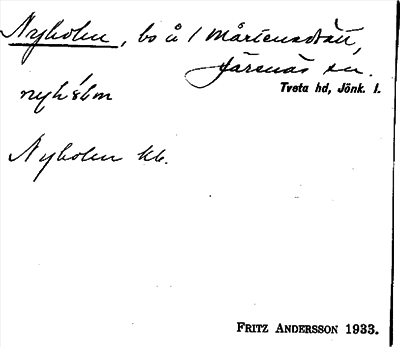 Nyholm, bo å 1 Mårtenstorp,
Järsnäs sn.
Tveta hd, Jönk. l.
nyhólm
Nyholm kb.
FRITZ ANDERSSON 1933.